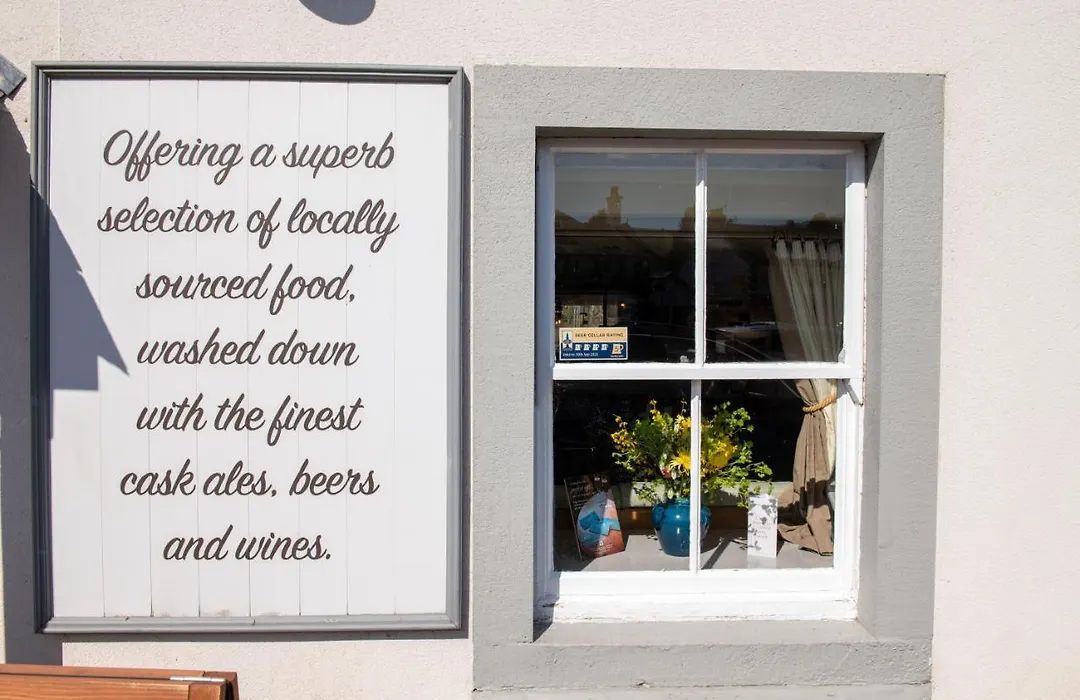 Offering a superb
selection of locally
sourced food,
washed down
with the finest
cask ales, beers
and wines.
BEER CELLAR RATING